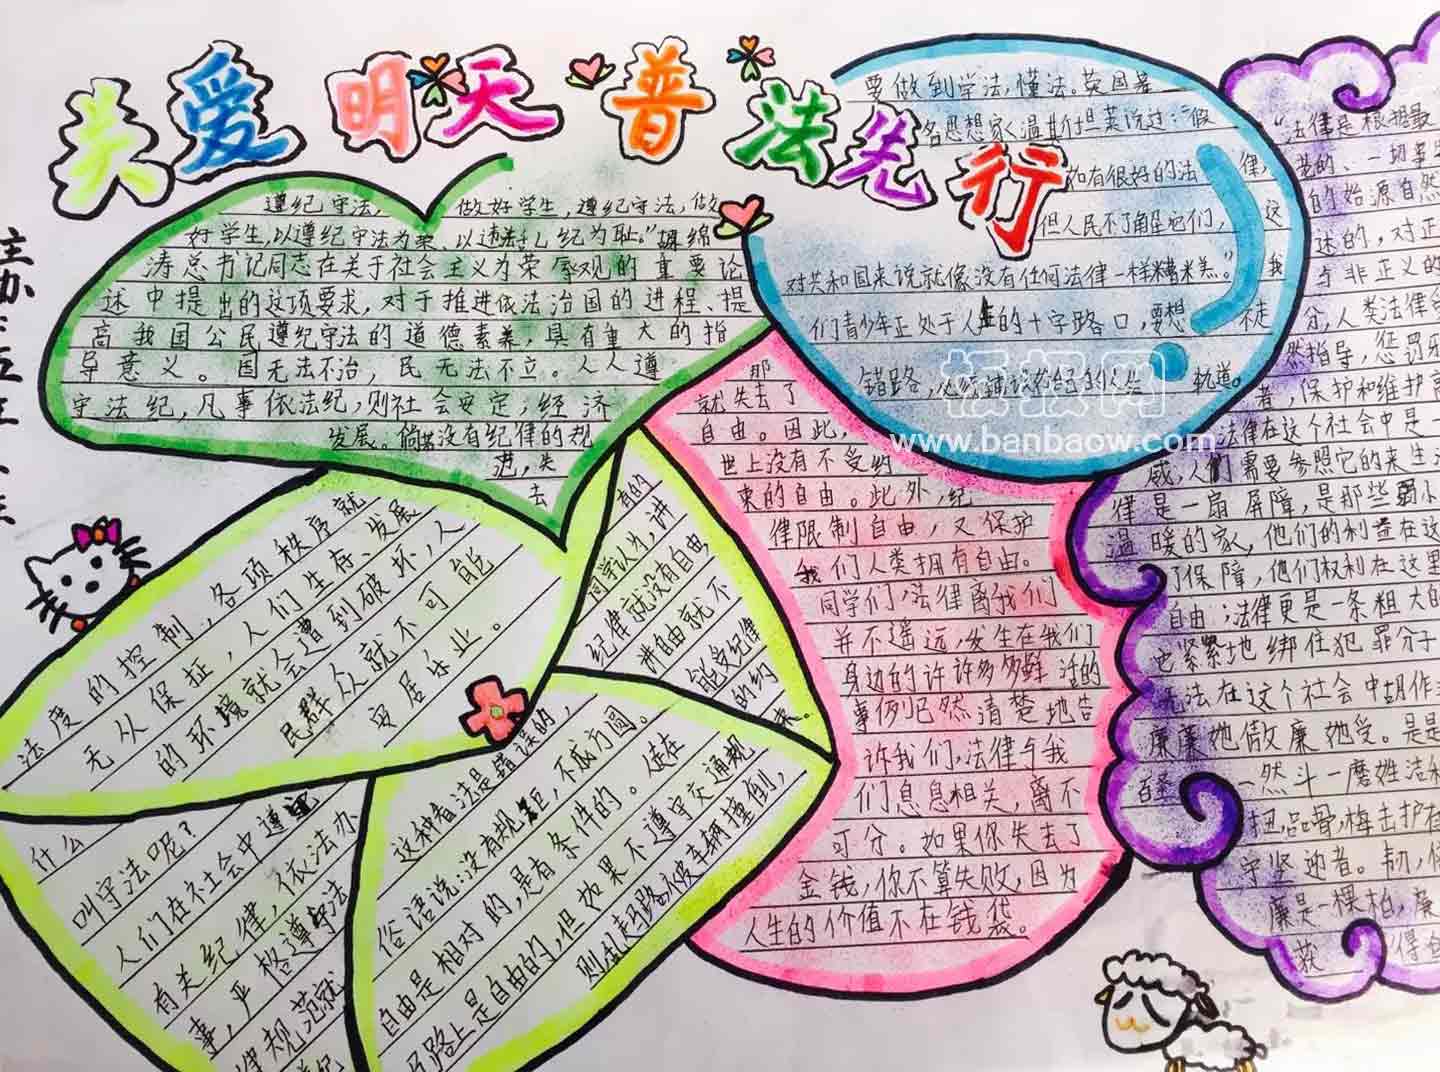 关爱明天 普法先行
主办:五
遵纪守法, 做好学生,遵纪守法,做
好学生,以遵纪守法为荣、以违法乱纪为耻。"胡锦
涛总书记同志在关于社会主义为荣辱观的重要论
述中提出的这项要求,对于推进依法治国的进程、提
高我国公民遵纪守法的道德素养,具有重大的指
导意义。国无法不治,民无法不立。人人遵
守法纪,凡事依法纪,则社会安定,经济
发展。倘若没有纪律的规
范,失
去
法度的控制,各项秩序就
无从保证,人们生存、发展
的环境就会遭到破坏,人
民群众就不可能
安居乐业。
什么
叫守法呢?
人们在社会中遵
有关纪律,依法办
事,严格遵守法
律规范就
有的
同学认为,讲
纪律就没有自由
讲自由就不
能受纪律
的约
束。
这种看法是错误的,
俗语说:没有规矩,不成方圆。
自由是相对的,是有条件的。人在
马路上是自由的,但如果不遵守交通规
则乱走马路,被车辆撞倒,
那
就失去了
自由。因此,
世上没有不受约
束的自由。此外,纪
律限制自由,又保护
我们人类拥有自由。
同学们,法律离我们
并不遥远,发生在我们
身边的许许多多鲜活的
事例已然清楚地告
许我们,法律与我
们息息相关,离不
可分。如果你失去了
金钱,你不算失败,因为
人生的价值不在钱袋。
要做到学法,懂法。英国著
名思想家温斯坦莱说过:"假
如有很好的法律,
但人民不了解它们,这
对共和国来说就像没有任何法律一样糟糕。"我
们青少年正处于人生的十字路口,要想
错路,必须 轨道。
"法律是根据最
老的、一切事
的始源自然
达的,对正
与非正义的
分,人类法律
然指导,惩罚
者,保护和维护
法律在这个社会中是一
威,人们需要参照它的来生
律是一扇屏障,是那些弱小
温暖的家,他们的利益在这
了保障,他们权利在这里
自由;法律更是一条粗大的
也紧紧地绑住犯罪分子
无法在这个社会中胡作
廉廉她做廉她受。是是
一然斗一磨姓洁
扭,品骨,梅击护
守坚迎者。韧,
廉是一棵柏,廉
获得
板报网
www.banbaow.com